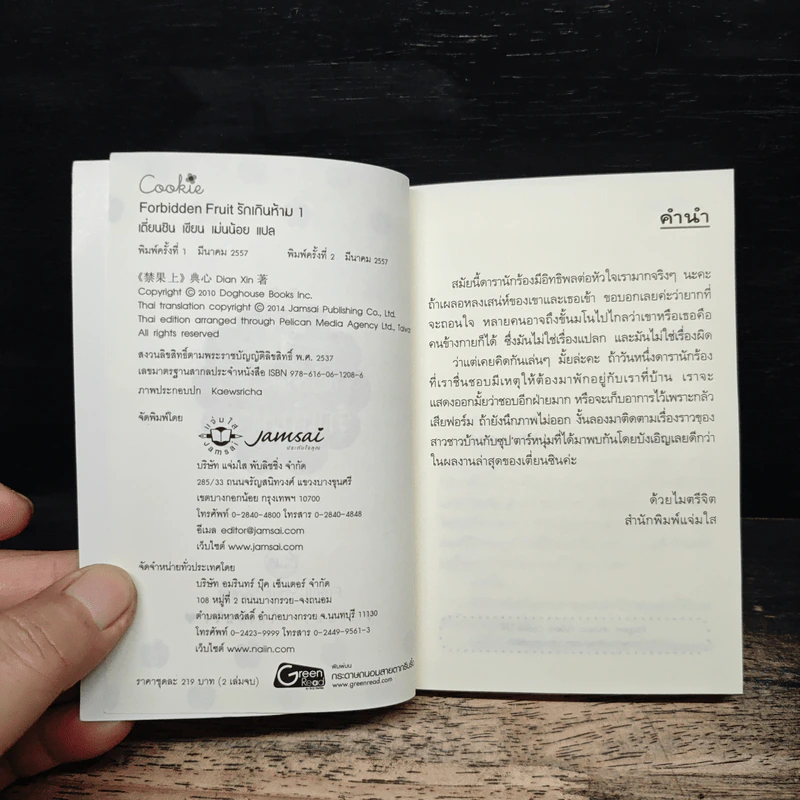 Cookie
Forbidden Fruit รักเกินห้าม 1
เตี่ยนซิน เขียน เม่นน้อย แปล
พิมพ์ครั้งที่ 1 มีนาคม 2557 พิมพ์ครั้งที่ 2 มีนาคม 2557
《禁果上》典心 Dian Xin 著
Copyright © 2010 Doghouse Books Inc.
Thai translation copyright © 2014 Jamsai Publishing Co., Ltd.
Thai edition arranged through Pelican Media Agency Ltd., Taiwa
All rights reserved
สงวนลิขสิทธิ์ตามพระราชบัญญัติลิขสิทธิ์ พ.ศ. 2537
เลขมาตรฐานสากลประจำหนังสือ ISBN 978-616-06-1208-6
ภาพประกอบปก Kaewsricha
จัดพิมพ์โดย
แจ่มใส
jamsai
jamsai
ประทับใจคุณ
บริษัท แจ่มใส พับลิชชิ่ง จำกัด
285/33 ถนนจรัญสนิทวงศ์ แขวงบางขุนศรี
เขตบางกอกน้อย กรุงเทพฯ 10700
โทรศัพท์ 0-2840-4800 โทรสาร 0-2840-4848
อีเมล editor@jamsai.com
เว็บไซต์ www.jamsai.com
จัดจำหน่ายทั่วประเทศโดย
บริษัท อมรินทร์ บุ๊ค เซ็นเตอร์ จำกัด
108 หมู่ที่ 2 ถนนบางกรวย-จงถนอม
ตำบลมหาสวัสดิ์ อำเภอบางกรวย จ.นนทบุรี 11130
โทรศัพท์ 0-2423-9999 โทรสาร 0-2449-9561-3
เว็บไซต์ www.naiin.com
Green Read
พิมพ์บน
กระดาษถนอมสายตากรีนรี้ด
www.greenread.com
ราคาชุดละ 219 บาท (2 เล่มจบ)
คำนำ
สมัยนี้ดารานักร้องมีอิทธิพลต่อหัวใจเรามากจริงๆ นะคะ
ถ้าเผลอหลงเสน่ห์ของเขาและเธอเข้า ขอบอกเลยค่ะว่ายากที่
จะถอนใจ หลายคนอาจถึงขั้นมโนไปไกลว่าเขาหรือเธอคือ
คนข้างกายก็ได้ ซึ่งมันไม่ใช่เรื่องแปลก และมันไม่ใช่เรื่องผิด
ว่าแต่เคยคิดกันเล่นๆ มั้ยล่ะคะ ถ้าวันหนึ่งดารานักร้อง
ที่เราชื่นชอบมีเหตุให้ต้องมาพักอยู่กับเราที่บ้าน เราจะ
แสดงออกมั้ยว่าชอบอีกฝ่ายมาก หรือจะเก็บอาการไว้เพราะกลัว
เสียฟอร์ม ถ้ายังนึกภาพไม่ออก งั้นลองมาติดตามเรื่องราวของ
สาวชาวบ้านกับซุป'ตาร์หนุ่มที่ได้มาพบกันโดยบังเอิญเลยดีกว่า
ในผลงานล่าสุดของเตี่ยนซินค่ะ
ด้วยไมตรีจิต
สำนักพิมพ์แจ่มใส